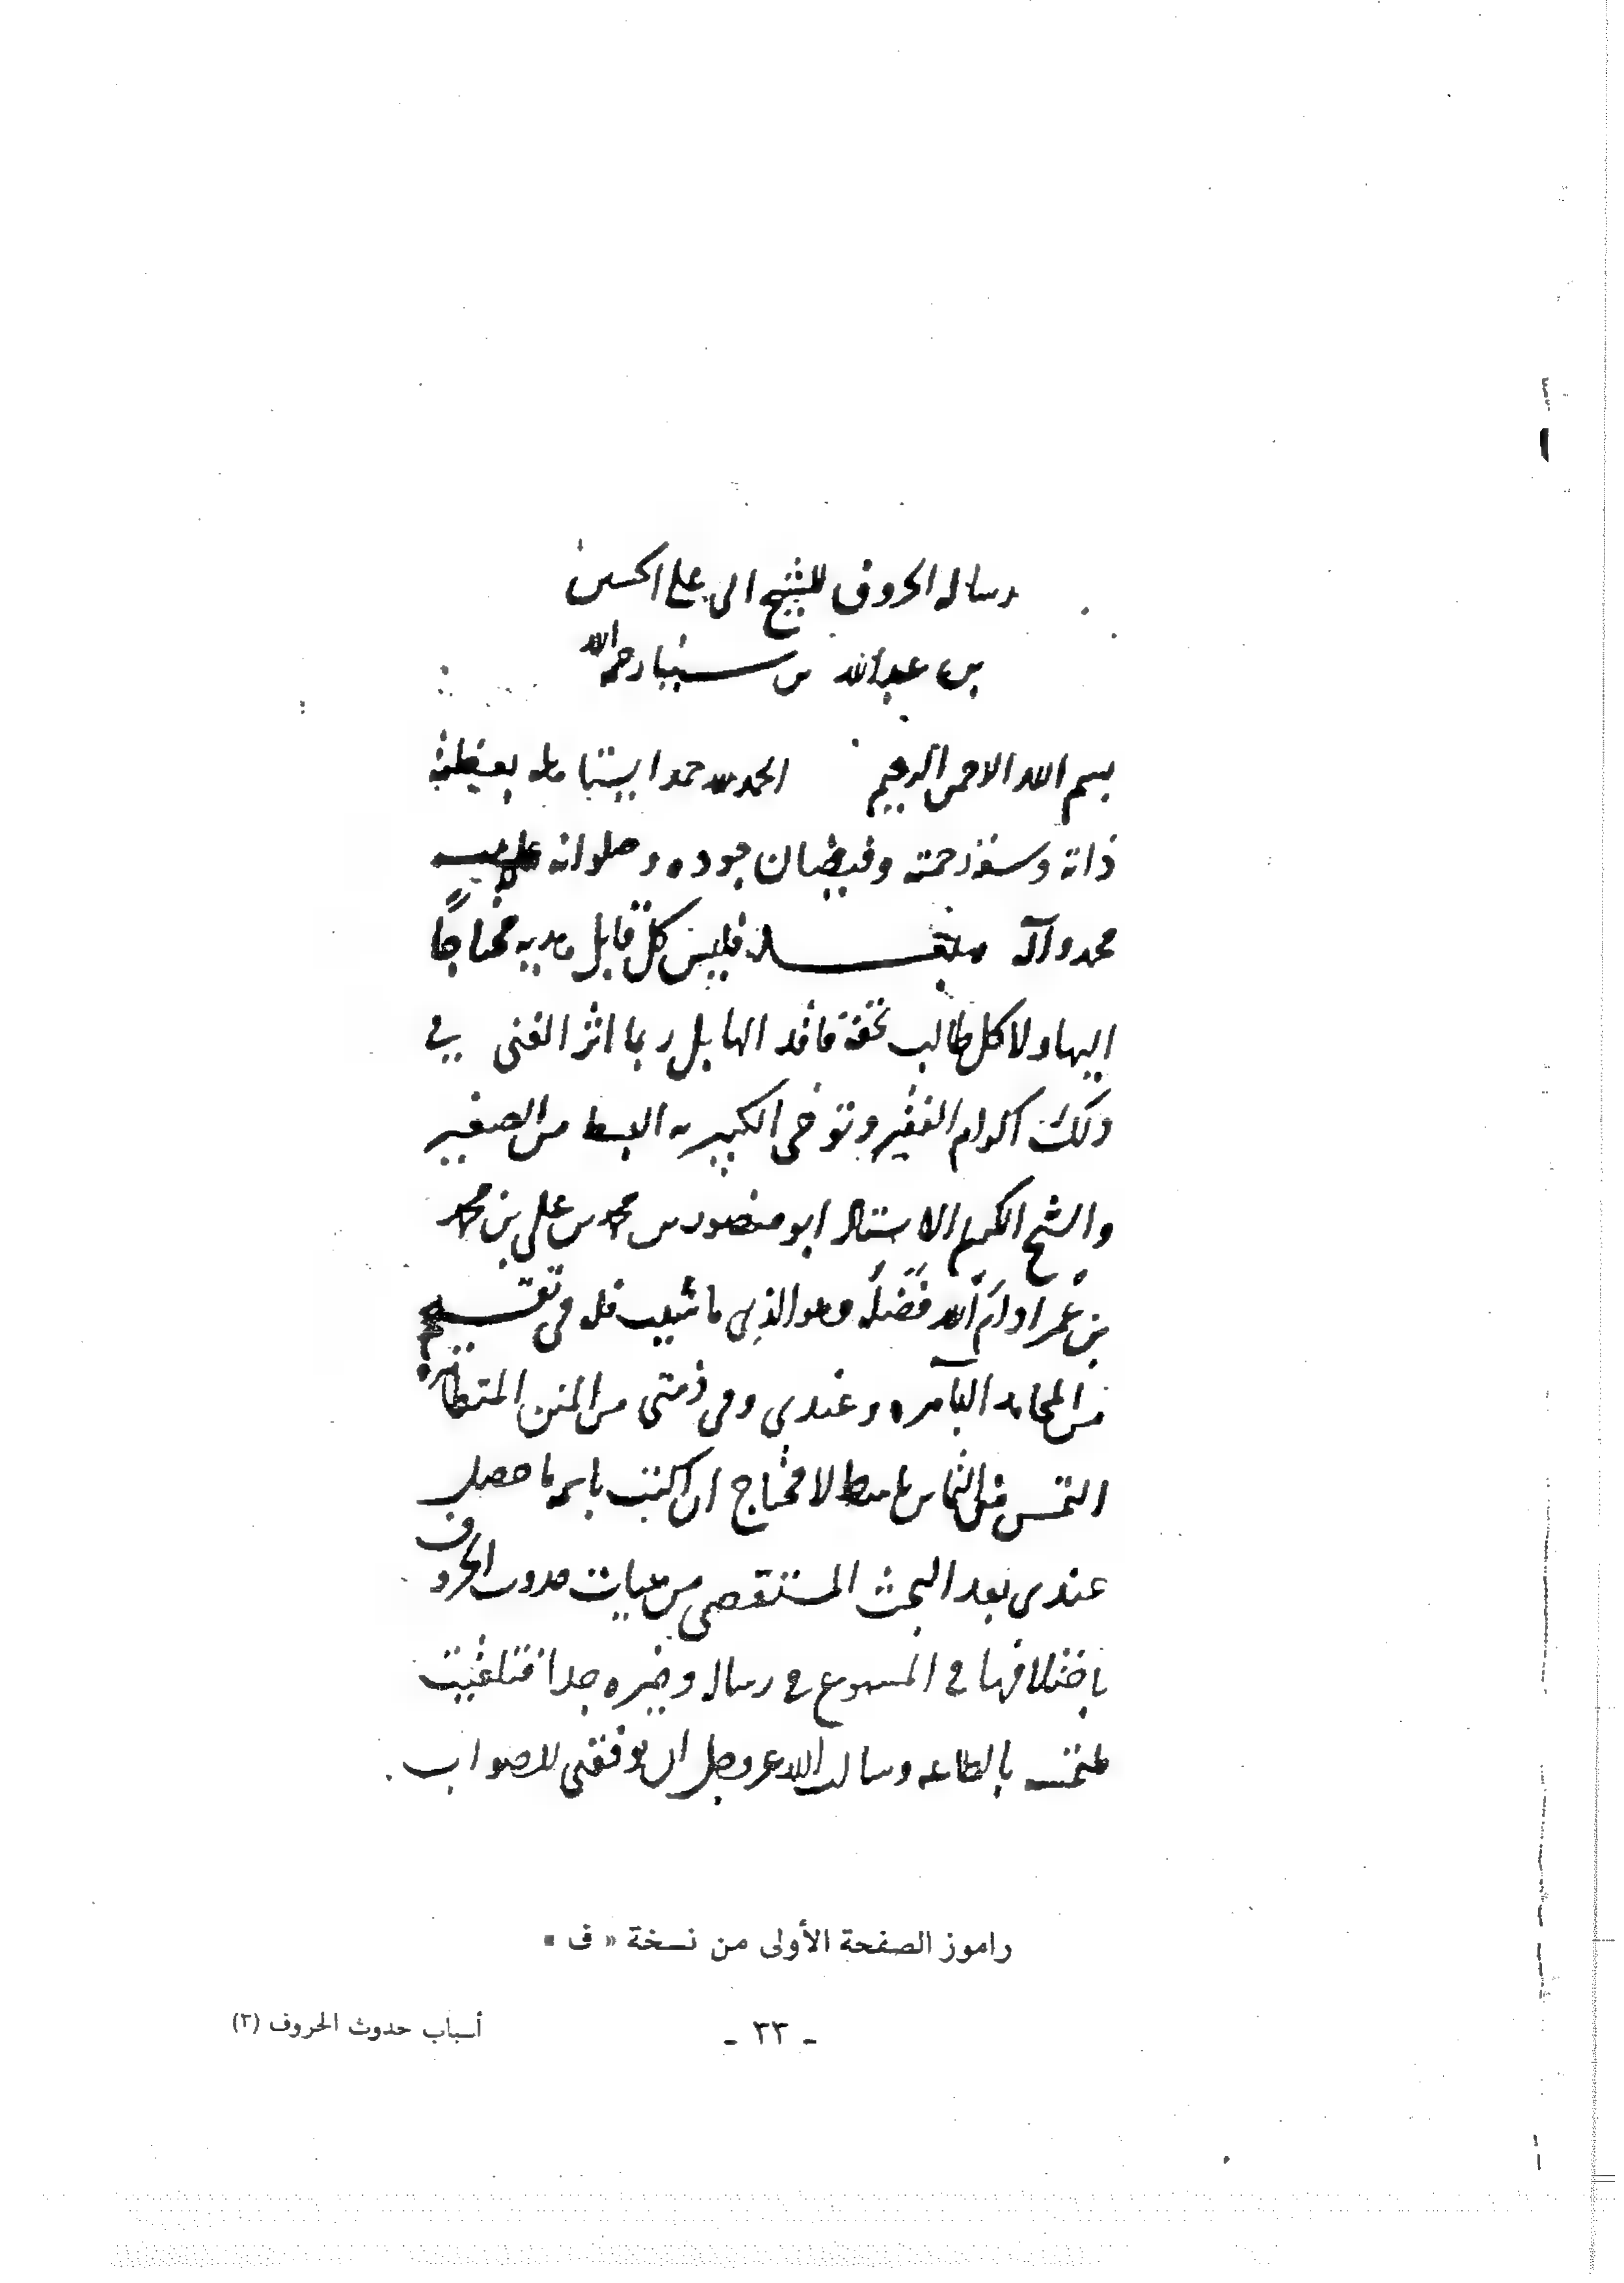 رساله الحروف للشيخ ابى على الحسين
بن عبدالله بن سينا رحمه الله
بسم الله الرحمن الرحيم الحمد لله حمدا يستاهله بعظمة
ذاته وسعة رحمته وفيضان جوده وصلواته على نبيه
محمد وآله فليس كل قابل هديه محتاجًا
اليها ولا كل طالب تحفة فاقد الها بل ربما اثر الغنى في
ذلك اكرام الفقير وتوخى الكبير به البسط من الصغير
والشيخ الكريم الاستاذ ابو منصور بن محمد بن على بن محمد
بن عمر ادام الله فضله وهو الذى ما شيت قله فى تقسيم
من المحامد الباهره وعندى وفى ذمتى من المنن المتظاهره
التمس منى التماس باسط لا محتاج ان اكتب باسمه ما حصل
عندى بعد البحث المستقصى من حدوث الحروف
باختلافها فى المسموع فى رساله وجيزه جدا فتلقيت
ملتمسه بالطاعه وسالت الله عز وجل ان يوفقنى للصواب
راموز الصفحة الأولى من نسخة « ف »
- ٣٣ -
أسباب حدوث الحروف (٣)